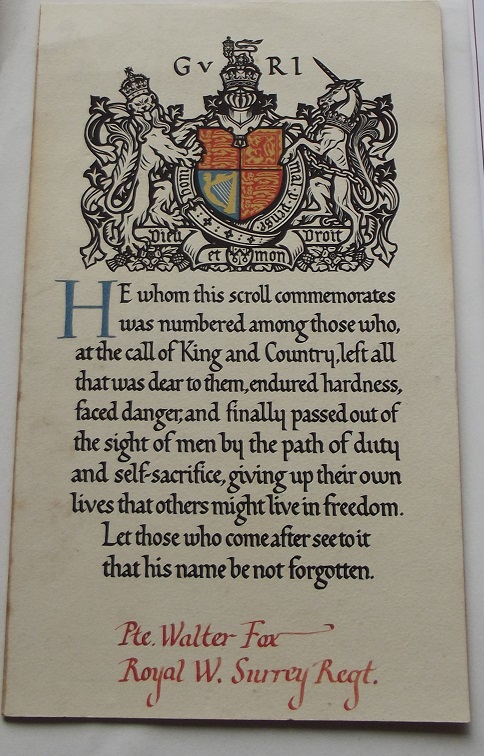 G v R I
Honi mal y pense
Dieu et mon Droit
HE whom this scroll commemorates
was numbered among those who,
at the call of King and Country, left all
that was dear to them, endured hardness,
faced danger, and finally passed out of
the sight of men by the path of duty
and self-sacrifice, giving up their own
lives that others might live in freedom.
Let those who come after see to it
that his name be not forgotten.
Pte. Walter Fox
Royal W. Surrey Regt.